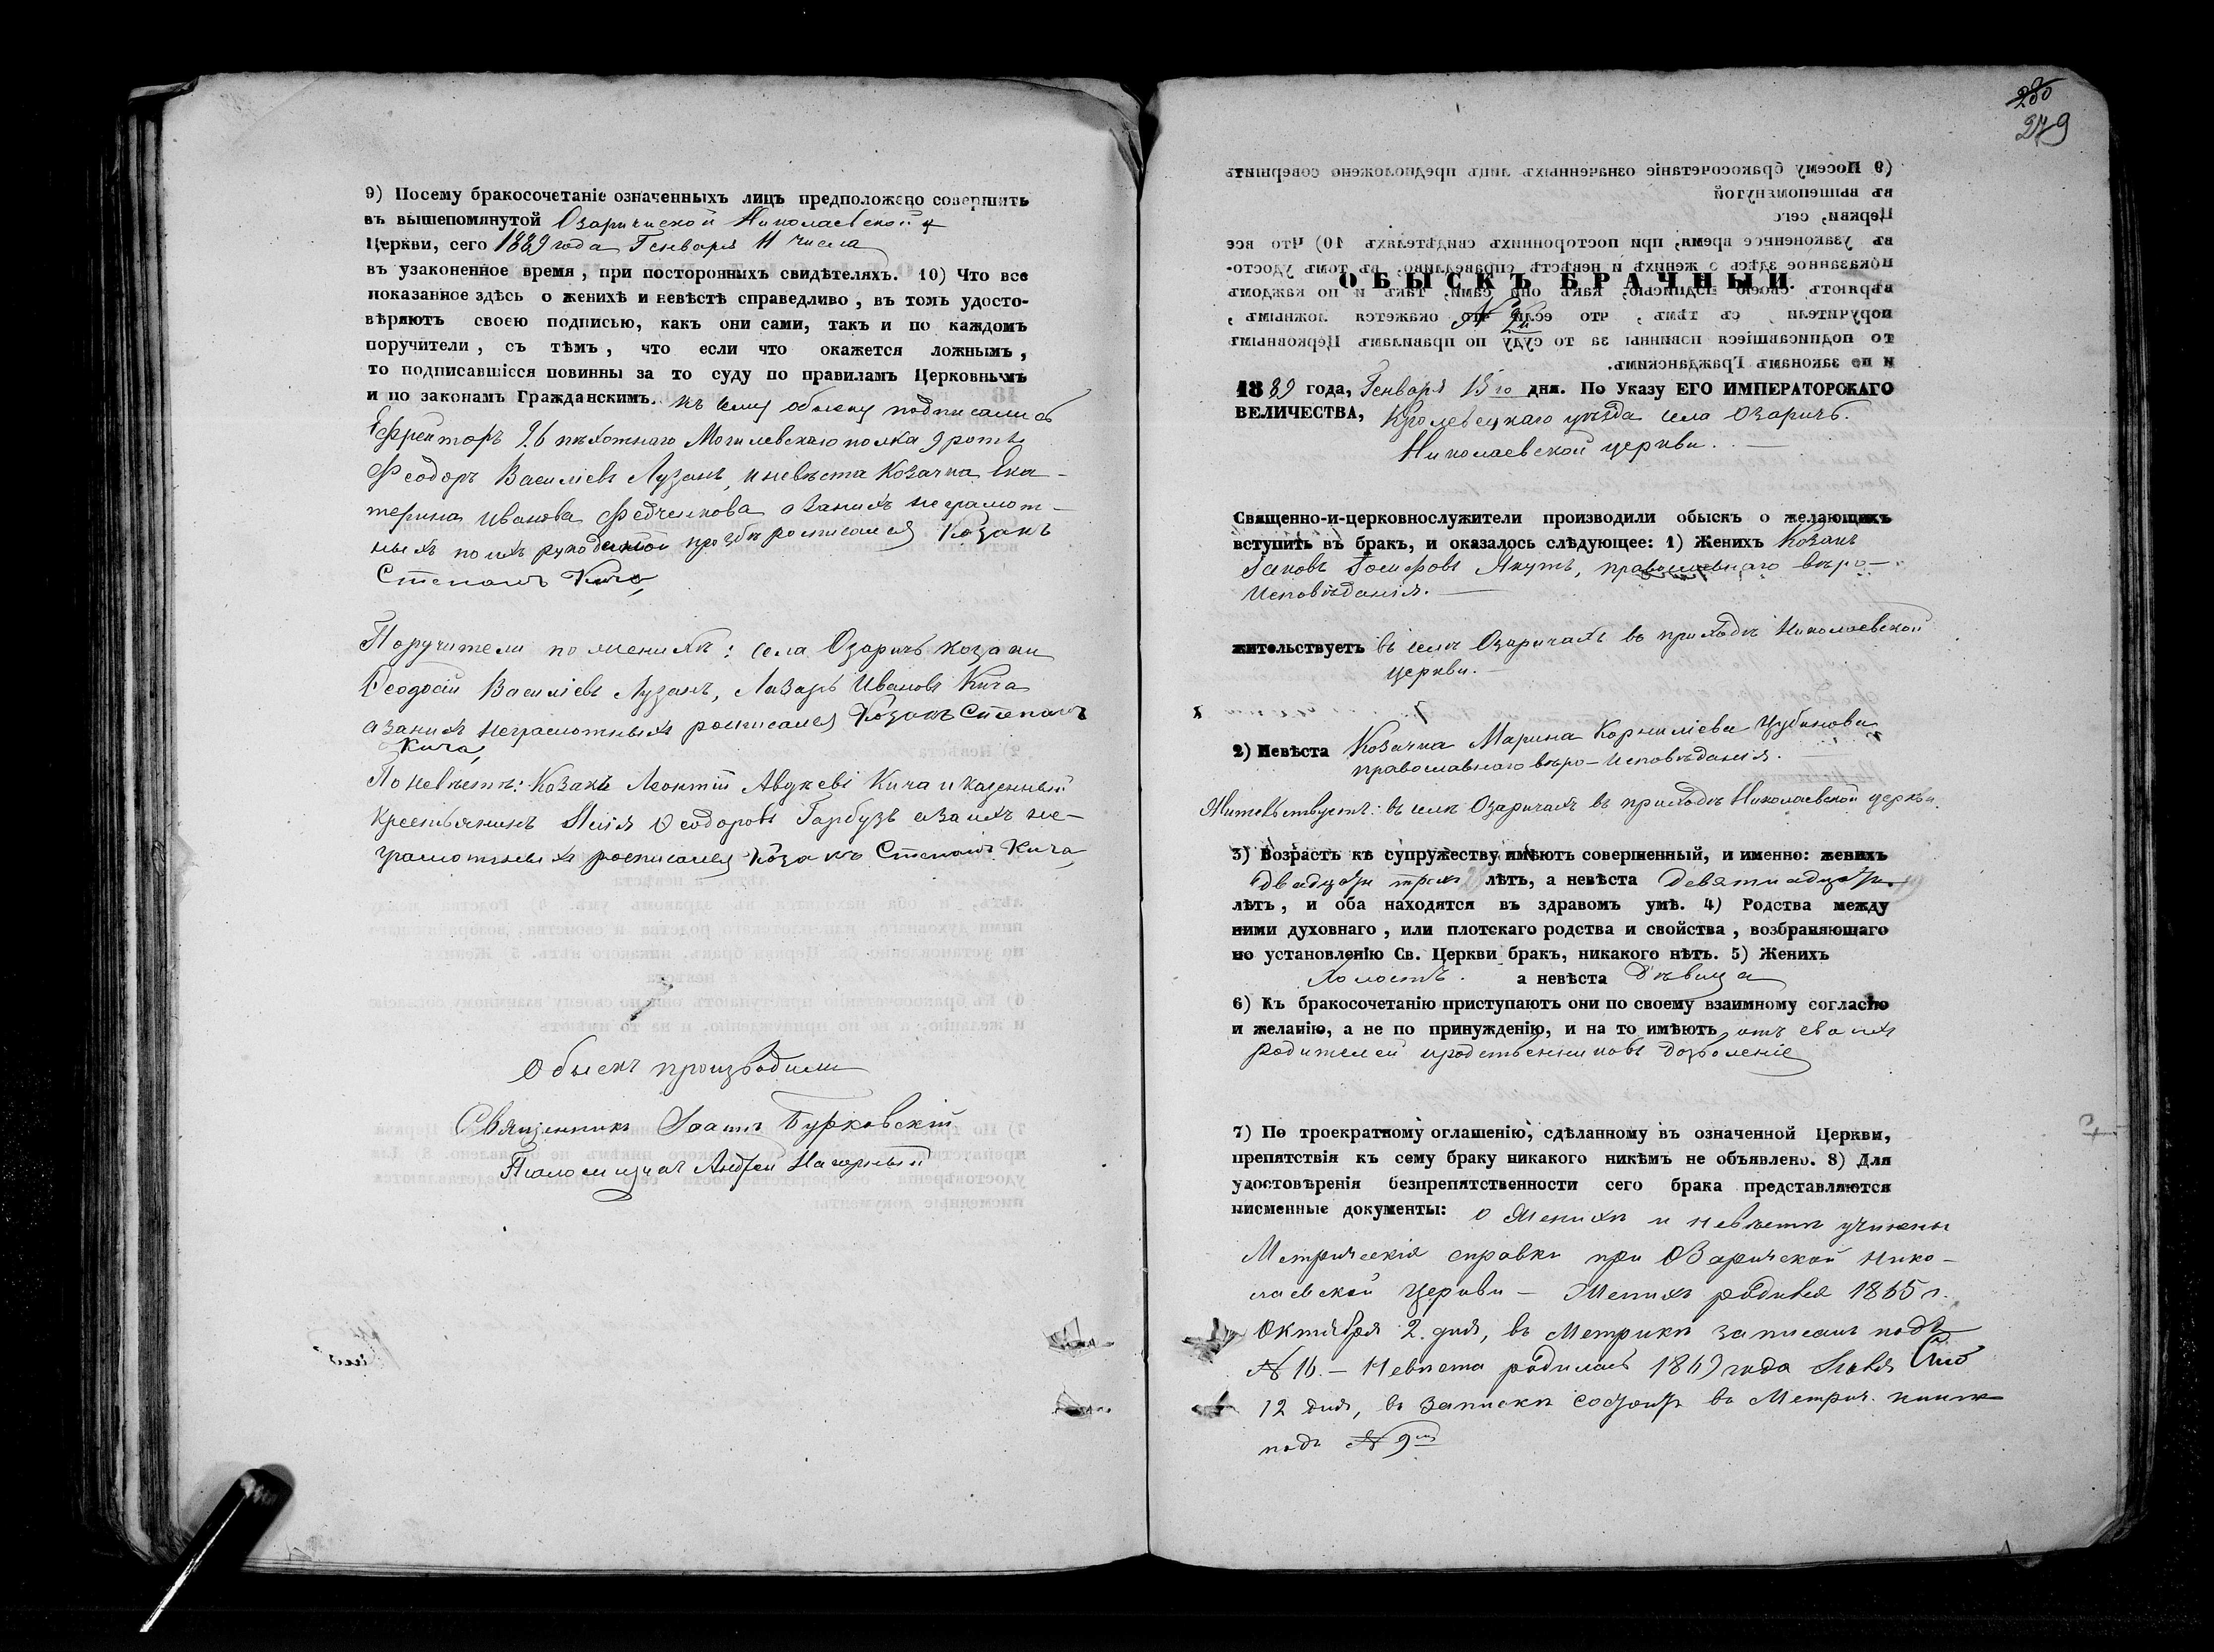 9) Посему бракосочетаніе означенныхъ лицъ предположено совершить
въ вышепомянутой Озаричской Николаевской
Церкви, сего 1889 года Генваря 11 числа
въ узаконенное время, при постороннихъ свидѣтеляхъ. 10) Что все
показанное здѣсь о женихѣ и невѣстѣ справедливо, въ томъ удосто-
вѣряютъ своею подписью, какъ они сами, такъ и по каждомъ
поручители, съ тѣмъ, что если что окажется ложнымъ,
то подписавшіеся повинны за то суду по правиламъ Церковнымъ
и по законамъ Гражданскимъ. Къ сему обыску подписались
Ефрейторъ пѣхотнаго Могилевскаго полка 9 роты
Феодоръ Василіевъ Лузанъ, и невѣста Козачка Ека-
терина Иванова Федченкова а за нихъ неграмот-
ныхъ по ихъ прозьбѣ росписался Козакъ
Степанъ Кича
Поручители по женихѣ: села Озаричъ козаки
Феодосій Василіевъ Лузанъ, Лазарь Ивановъ Кича
а за нихъ неграмотныхъ росписался Козакъ Степанъ
Кича
По невѣстѣ: Козакъ Леонтій Кича и казенный
Крестьянинъ Илія Феодоровъ Гарбузъ а за ихъ не-
грамотныхъ росписался Козакъ Степанъ Кича
Обыскъ производили
Священникъ Іоаннъ Бурковскій
Псаломщикъ Андрей Нагорный
280
279
ОБЫСКЪ БРАЧНЫЙ.
№ 2й
1889 года, Генваря 15го дня. По Указу ЕГО ИМПЕРАТОРСКАГО
ВЕЛИЧЕСТВА, Кролевецкаго уѣзда села Озаричъ
Николаевской церкви.
Священно-и-церковнослужители производили обыскъ о желающихъ
вступить въ бракъ, и оказалось слѣдующее: 1) Женихъ Козакъ
Іаковъ Іосифовъ Якутъ, православнаго вѣро-
Исповѣданія.
жительствуетъ въ селѣ Озаричахъ въ приходѣ Николаевской
церкви.
2) Невѣста Козачка Марина Корниліева
православнаго вѣро-Исповѣданія.
Жительствуетъ: въ селѣ Озаричахъ въ приходѣ Николаевской церкви.
3) Возрастъ къ супружеству имѣютъ совершенный, и именно: женихъ
двадцати трехъ лѣтъ, а невѣста девятнадцати
лѣтъ, и оба находятся въ здравомъ умѣ. 4) Родства между
ними духовнаго, или плотскаго родства и свойства, возбраняющаго
по установленію Св. Церкви бракъ, никакого нѣтъ. 5) Женихъ
холостъ. а невѣста дѣвица
6) Къ бракосочетанію приступаютъ они по своему взаимному согласію
и желанію, а не по принужденію, и на то имѣютъ отъ своихъ
родителей и родственниковъ дозволеніе
7) По троекратному оглашенію, сдѣланному въ означенной Церкви,
препятствія къ сему браку никакого никѣмъ не объявлено. 8) Для
удостовѣренія безпрепятственности сего брака представляются
письменные документы: О Женихѣ и невѣстѣ учинены
Метрическія справки при Озаричской Нико-
лаевской Церкви — Женихъ родился 1865 г.
Октября 2. дня, въ Метрикѣ записанъ подъ
№ 16. — Невѣста родилась 1869 года Іюля
12 дня, въ записки состоитъ въ Метрич. книгѣ
подъ № 9мъ